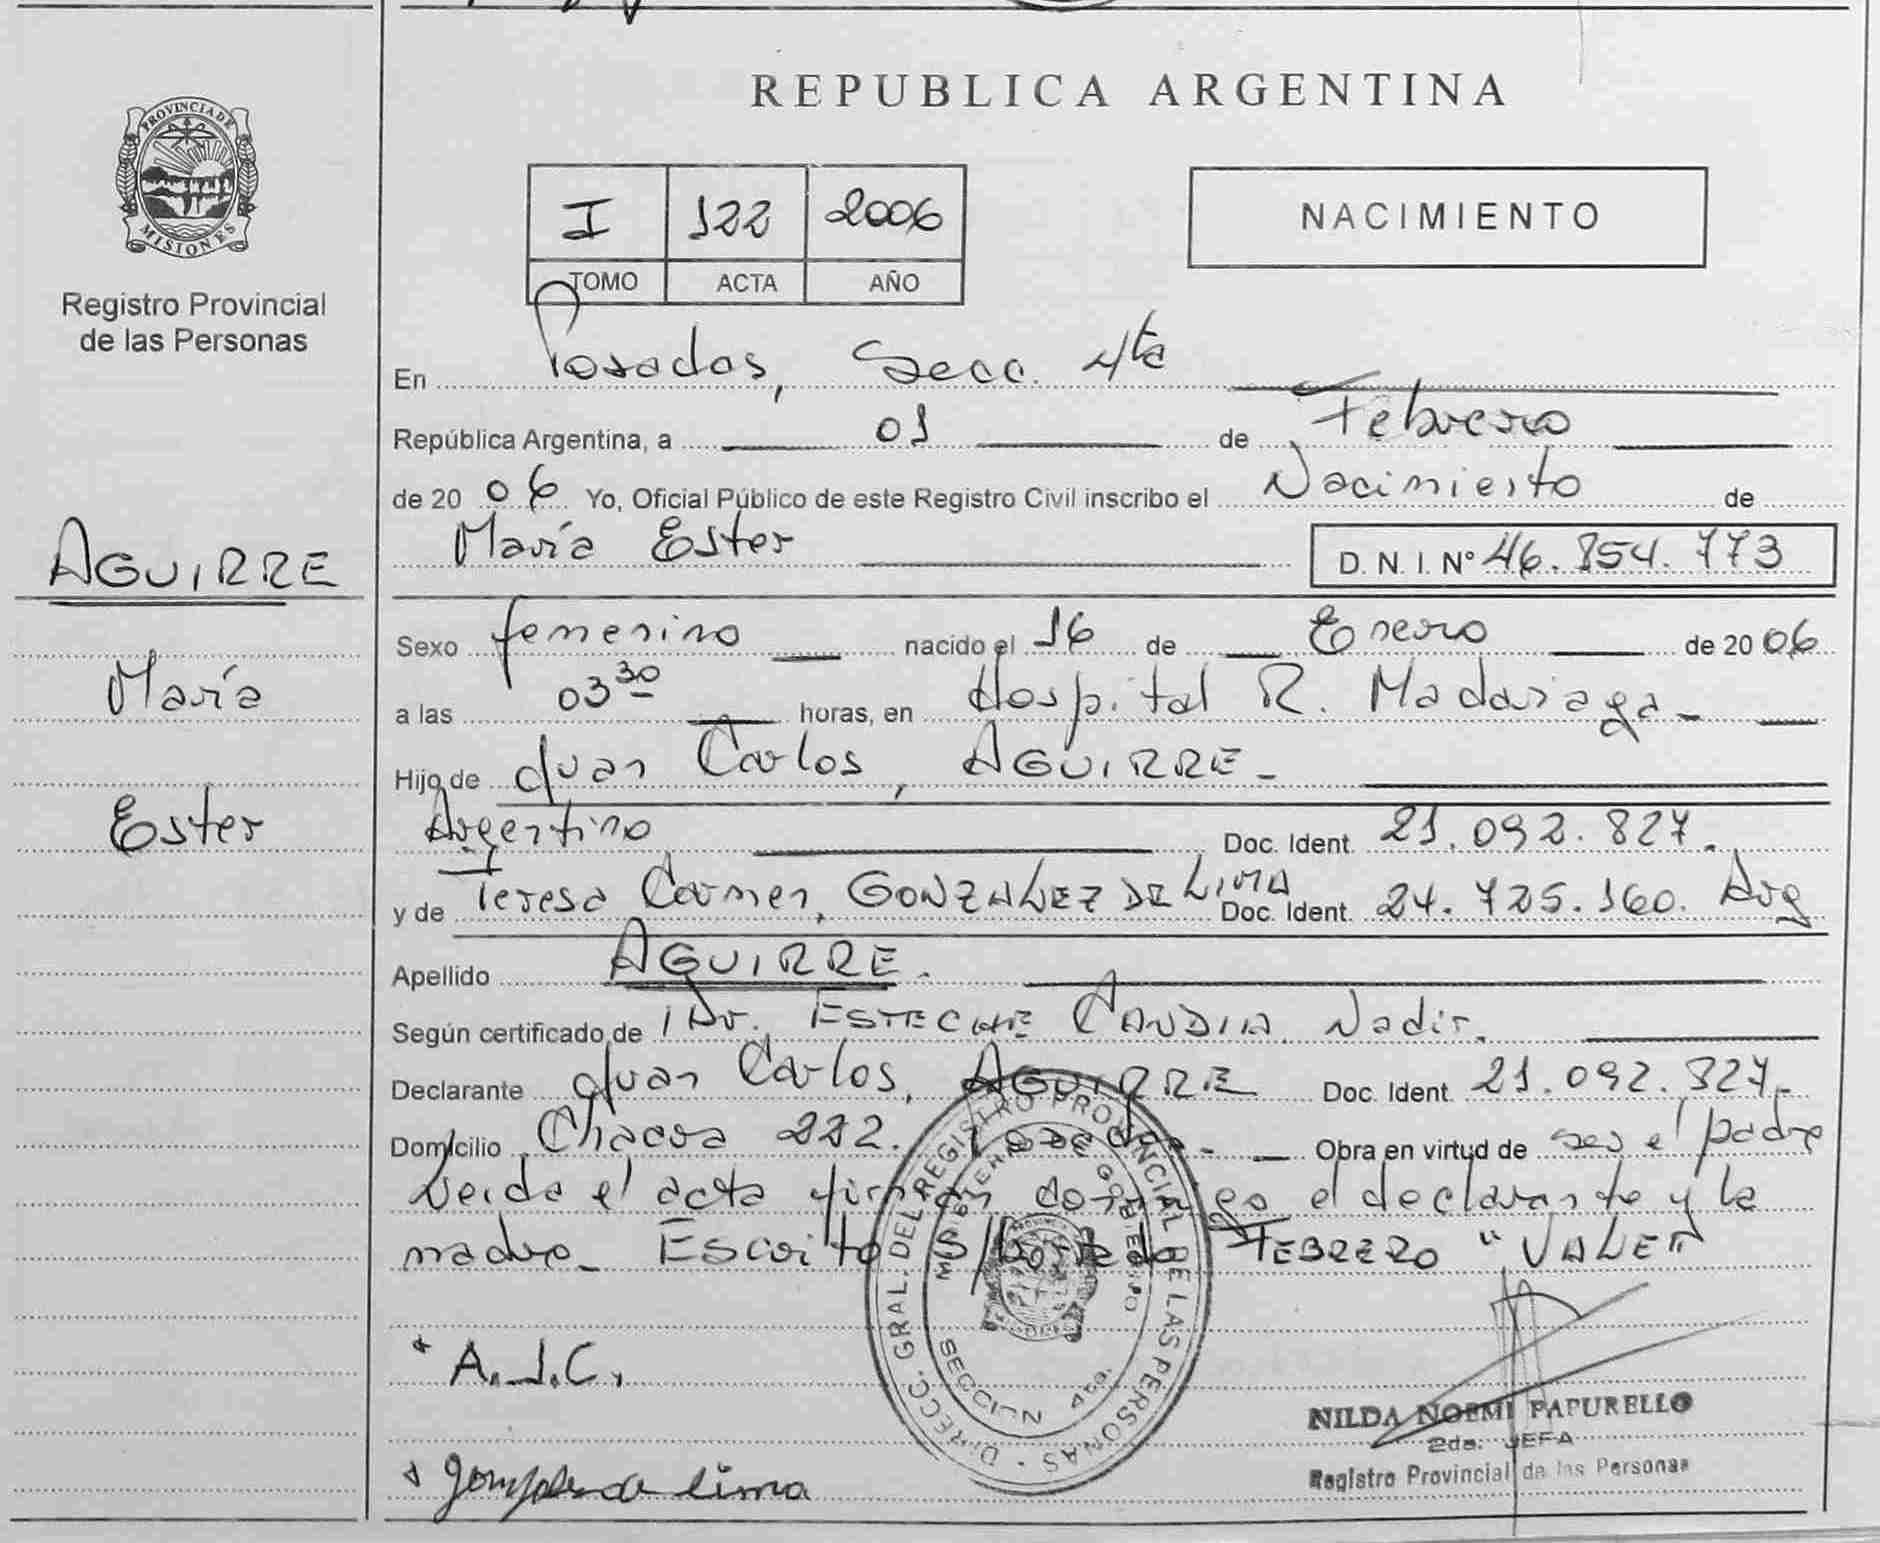 REPUBLICA ARGENTINA
PROVINCIA DE
MISIONES
Registro Provincial
de las Personas
I 122 2006
TOMO ACTA AÑO
NACIMIENTO
En Posadas, Secc. 4ta
República Argentina, a 01 de Febrero
de 2006 Yo, Oficial Público de este Registro Civil inscribo el Nacimiento de
María Ester D. N. I. Nº 46.854.773
AGUIRRE
María
Ester
Sexo femenino nacido el 16 de Enero de 2006
a las 03 30 horas, en Hospital R. Madariaga -
Hijo de Juan Carlos, AGUIRRE -
Argentino Doc. Ident. 21.092.827.
y de Teresa Carmen, GONZALEZ DE LIMA Doc. Ident. 24.725.160. Arg
Apellido AGUIRRE.
Según certificado de Dr. ESTECHE CANDIA Nadir.
Declarante Juan Carlos, AGUIRRE Doc. Ident. 21.092.827.
Domicilio Chacra 222. Posadas - Obra en virtud de ser el padre
Leida el acta firman conmigo el declarante y la
madre_ Escrito s/borrado FEBRERO "VALE"
A.J.C.
Gonzalez de lima
DIRECC. GRAL. DEL REGISTRO PROVINCIAL DE LAS PERSONAS
MINISTERIO DE GOBIERNO
SECCION 4ta.
NILDA NOEMI PAPURELLO
2da. JEFA
Registro Provincial de las Personas